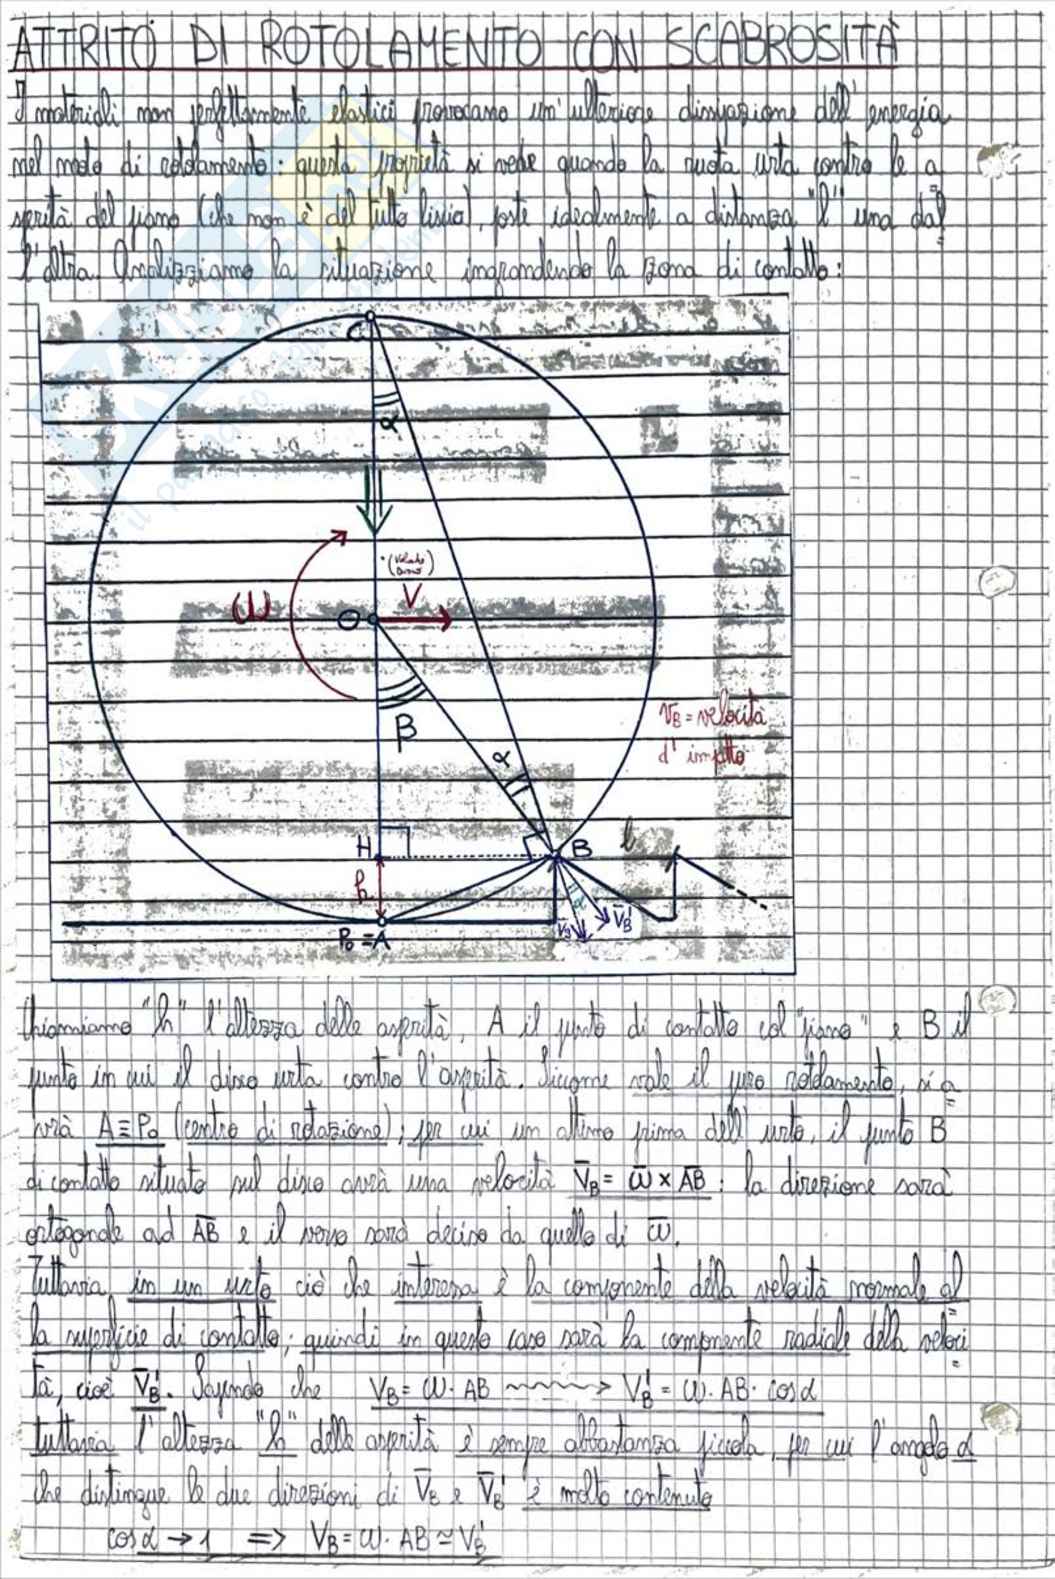 ATTRITO DI ROTOLAMENTO CON SCABROSITÀ
I materiali non perfettamente elastici provocano un' ulteriore dissipazione dell' energia
nel moto di rotolamento: questa proprietà si vede quando la ruota urta contro le a
sperità del piano (che non è del tutto liscio), poste idealmente a distanza "l" una dal
l'altra. Analizziamo la situazione ingrandendo la zona di contatto:
C
α
(velocità disco)
V
ω
O
β
V_B = velocità
d' impatto
α
H
B
l
h
α
V_B
V_B'
P₀ ≡ A
Chiamiamo "h" l'altezza delle asperità, A il punto di contatto col "piano" e B il
punto in cui il disco urta contro l'asperità. Siccome vale il puro rotolamento, si a
vrà A ≡ P₀ (centro di rotazione); per cui un attimo prima dell' urto, il punto B
di contatto situato sul disco avrà una velocità V̄_B = ω̄ × A̅B̅ : la direzione sarà
ortogonale ad A̅B̅ e il verso sarà deciso da quello di ω̄.
Tuttavia in un urto ciò che interessa è la componente della velocità normale al
la superficie di contatto; quindi in questo caso sarà la componente radiale della veloci
tà, cioè V̄_B'. Sapendo che V_B = ω · AB ~~~> V_B' = ω · AB · cosα
tuttavia l'altezza "h" delle asperità è sempre abbastanza piccola, per cui l'angolo α
che distingue le due direzioni di V̄_B e V̄_B' è molto contenuto
cosα → 1 => V_B = ω · AB ≃ V_B'